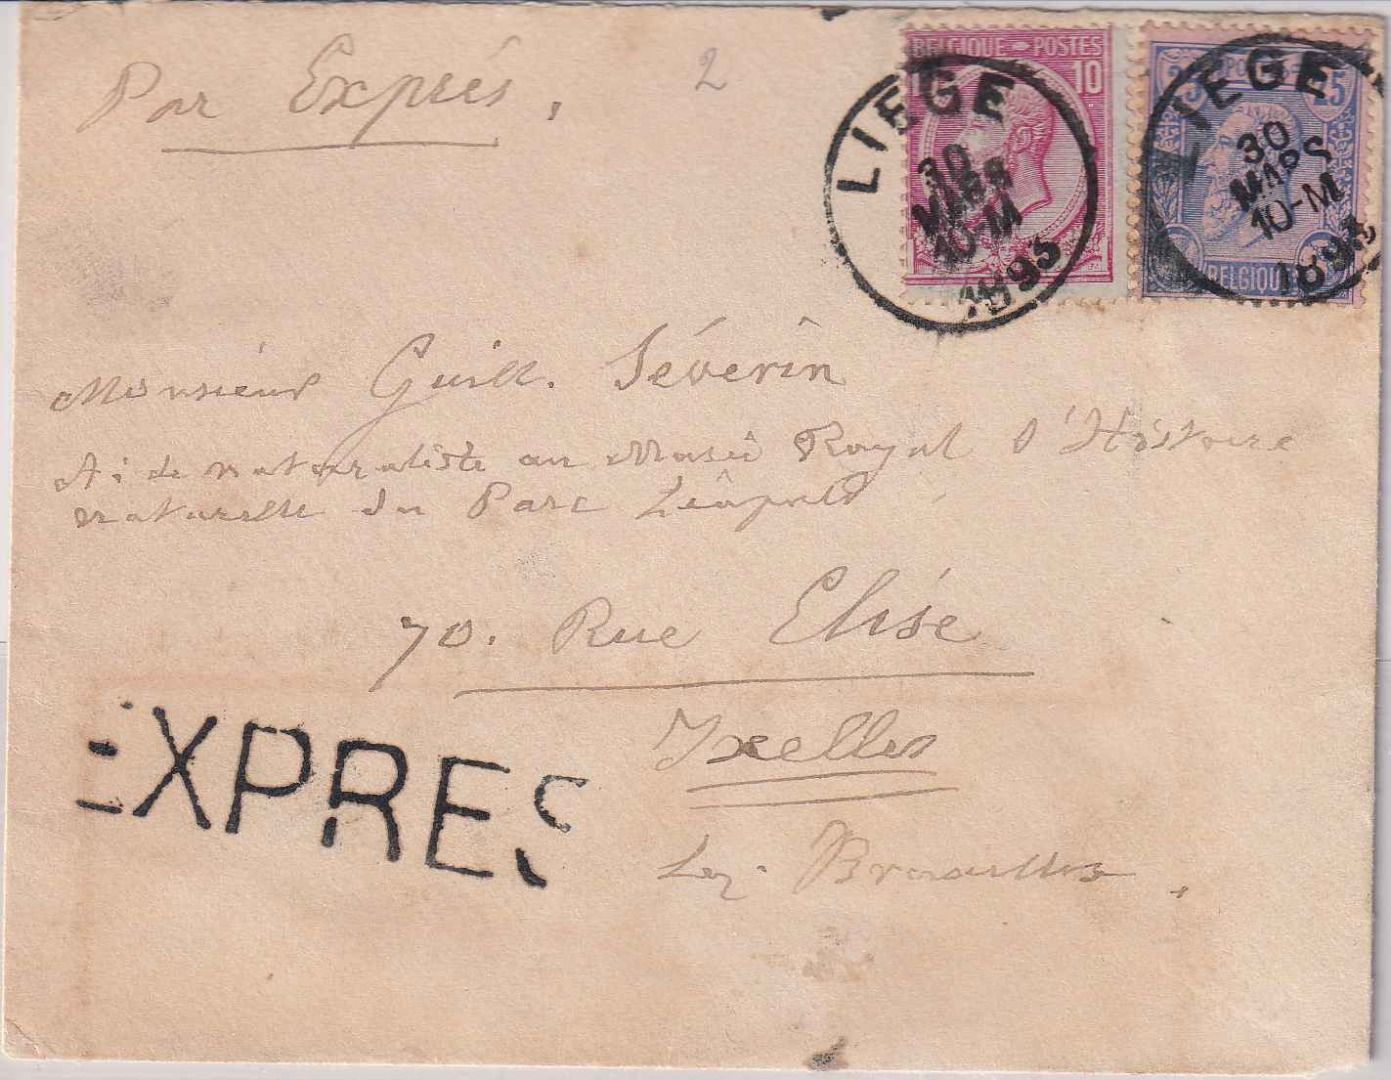 Par Exprés.
2
BELGIQUE POSTES
10
LIEGE
30
MARS
10-M
1893
25 25
LIEGE
30
MARS
10-M
1893
BELGIQUE
Monsieur Guill. Séverin
Aide naturaliste au Musée Royal d'Histoire
naturelle du Parc Léopold
70. Rue Elise
Ixelles
Lez-Bruxelles.
EXPRES